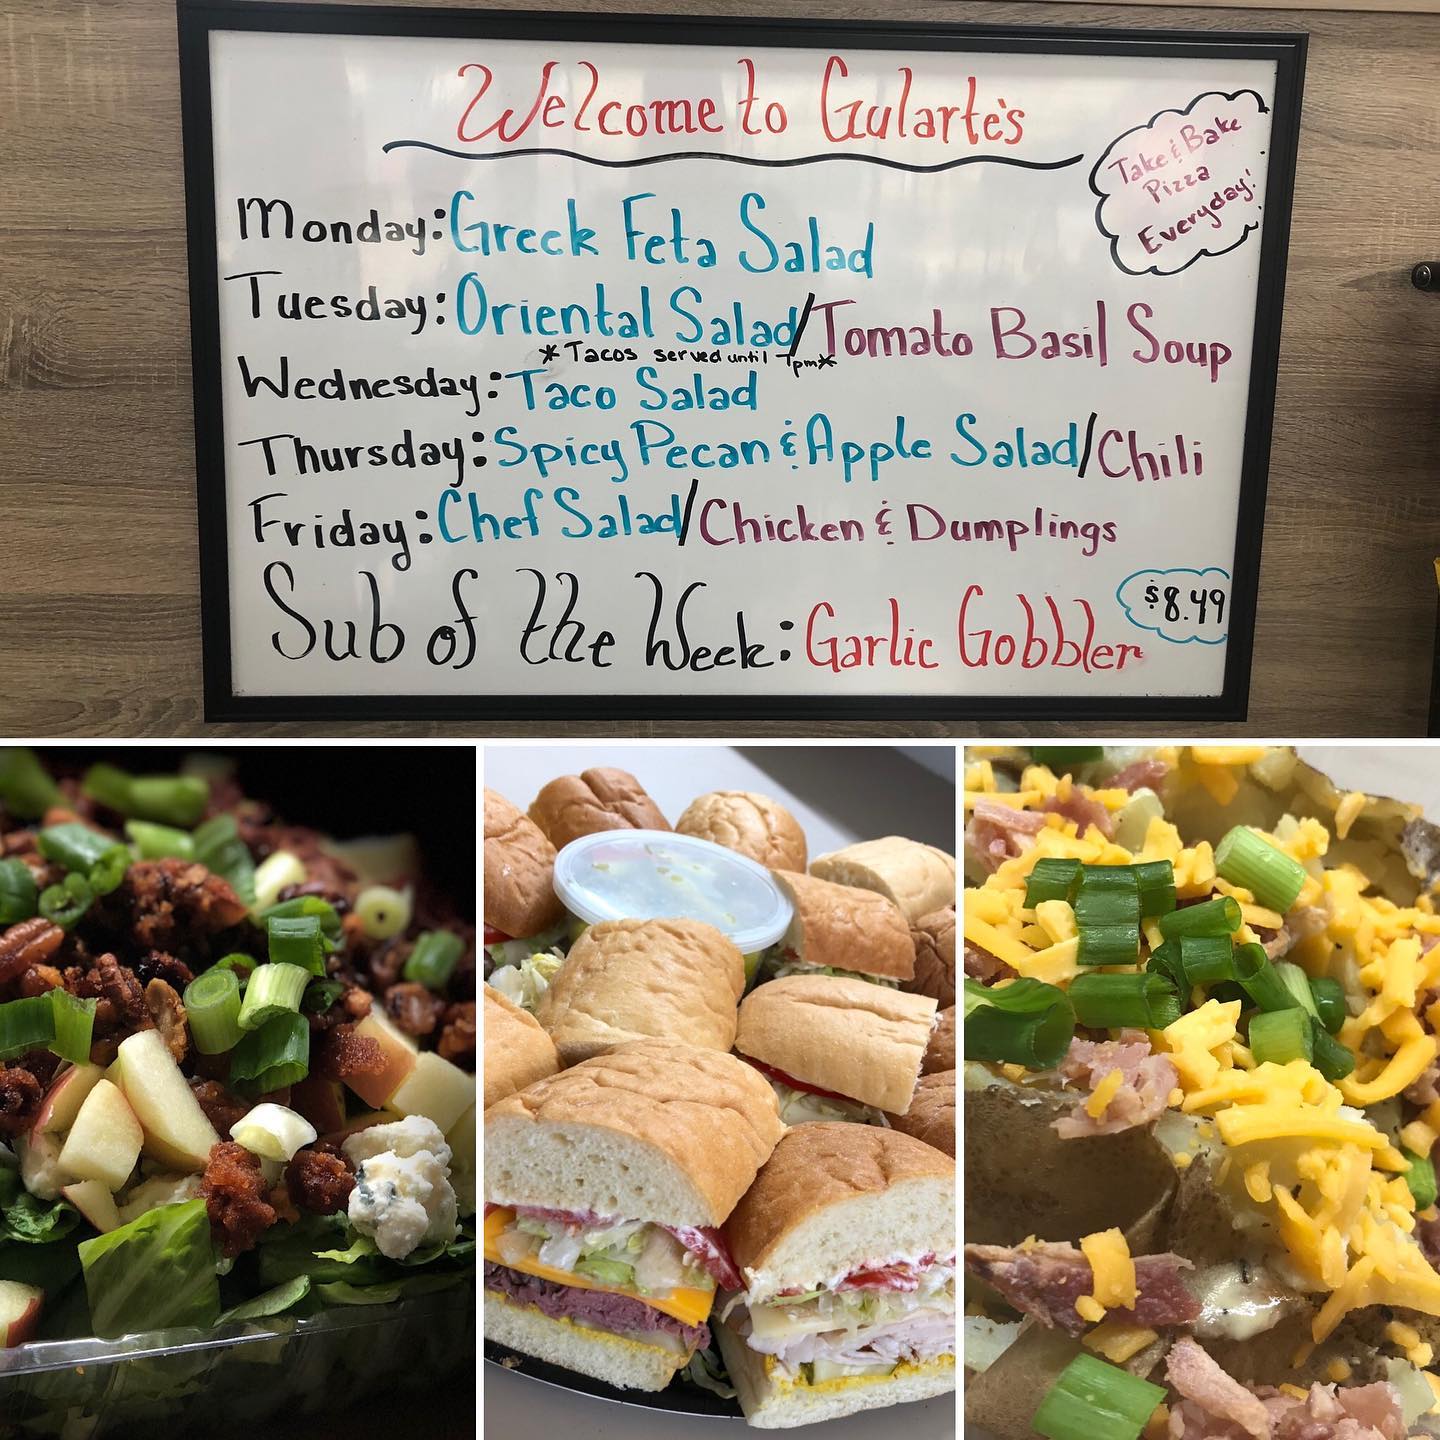 Welcome to Gularte's
Take & Bake
Pizza
Everyday!
Monday: Greek Feta Salad
Tuesday: Oriental Salad/Tomato Basil Soup
*Tacos served until 7pm*
Wednesday: Taco Salad
Thursday: Spicy Pecan & Apple Salad/Chili
Friday: Chef Salad/Chicken & Dumplings
Sub of the Week: Garlic Gobbler
$8.49